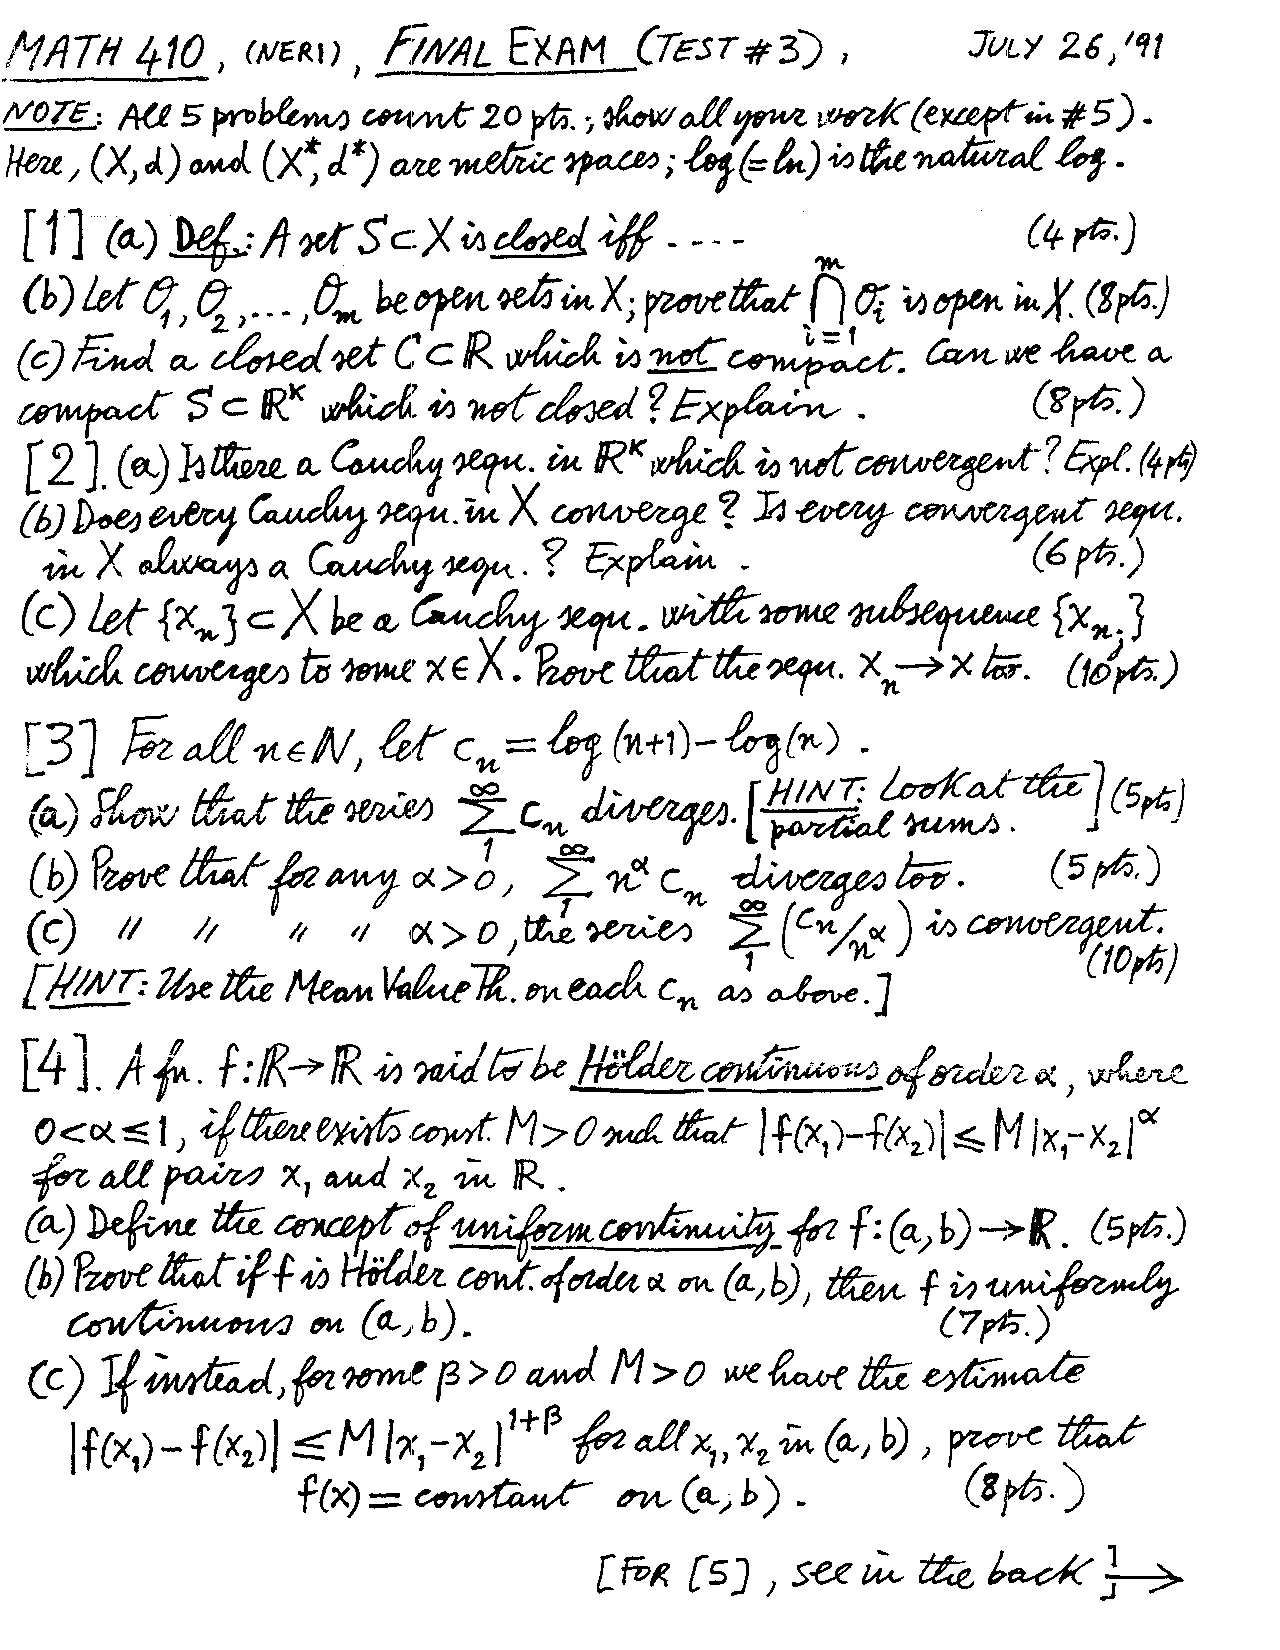 MATH 410, (NERI), FINAL EXAM (TEST #3), JULY 26, '91
NOTE: All 5 problems count 20 pts.; show all your work (except in #5).
Here, (X,d) and (X*,d*) are metric spaces; log (=ln) is the natural log.
[1] (a) Def.: A set S⊂X is closed iff ---- (4 pts.)
(b) Let O₁, O₂, ..., Oₘ be open sets in X; prove that ⋂ᵢ₌₁ᵐ Oᵢ is open in X. (8pts.)
(c) Find a closed set C⊂ℝ which is not compact. Can we have a
compact S⊂ℝᵏ which is not closed? Explain. (8pts.)
[2]. (a) Is there a Cauchy sequ. in ℝᵏ which is not convergent? Expl. (4pts)
(b) Does every Cauchy sequ. in X converge? Is every convergent sequ.
in X always a Cauchy sequ.? Explain. (6 pts.)
(c) Let {xₙ}⊂X be a Cauchy sequ. with some subsequence {xₙⱼ}
which converges to some x∈X. Prove that the sequ. xₙ→x too. (10pts.)
[3] For all n∈ℕ, let cₙ = log(n+1)-log(n).
(a) Show that the series ∑₁^∞ cₙ diverges. [HINT: Look at the partial sums.] (5pts)
(b) Prove that for any α>0, ∑₁^∞ n^α cₙ diverges too. (5 pts.)
(c) " " " " α>0, the series ∑₁^∞ (cₙ/n^α) is convergent. (10pts)
[HINT: Use the Mean Value Th. on each cₙ as above.]
[4]. A fn. f:ℝ→ℝ is said to be Hölder continuous of order α, where
0<α≤1, if there exists const. M>0 such that |f(x₁)-f(x₂)| ≤ M|x₁-x₂|^α
for all pairs x₁ and x₂ in ℝ.
(a) Define the concept of uniform continuity for f:(a,b)→ℝ. (5pts.)
(b) Prove that if f is Hölder cont. of order α on (a,b), then f is uniformly
continuous on (a,b). (7pts.)
(c) If instead, for some β>0 and M>0 we have the estimate
|f(x₁)-f(x₂)| ≤ M|x₁-x₂|^{1+β} for all x₁, x₂ in (a,b), prove that
f(x) = constant on (a,b). (8pts.)
[FOR [5], see in the back] →